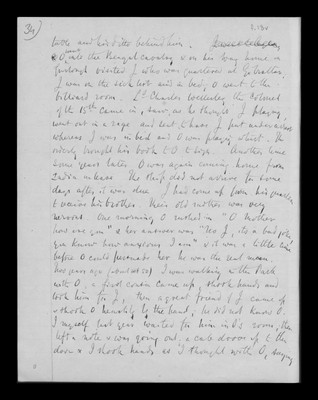 34
both and his ditto behind him.
O, into the Bengal Cavalry & on his way home on
furlough visited J who was quartered at Gibraltar.
J was on the sick list and in bed, O went to the
billiard room. Ld Charles Wellesley the Colonel
of the 15th came in, & saw as he thought J playing,
went out in a rage and
whereas J was in bed and O was playing whist. The
orderly brought his both to O to sign. Another time
some years later O was again coming home from
India on leave. The ship did not arrive for some
days after it was due. J had come up from his quarters
to receive his brother. Their old mother was very
nervous. One morning O rushed in "O Mother
how are you" & her answer was "No J, its a bad joke
you know how anxious I am" & it was a little time
before O could persuade her he was the real man.
years ago (about 50) I was walking in the Park
with O, a first cousin came up, shook hands and
took him for J, then a great friend of J came up
& shook O heartily by the hand, he did not know O.
I myself last year waited for him in O's room, then
left a note & was going out, a cab drove up to the
door & I shook hands as I thought with O, saying